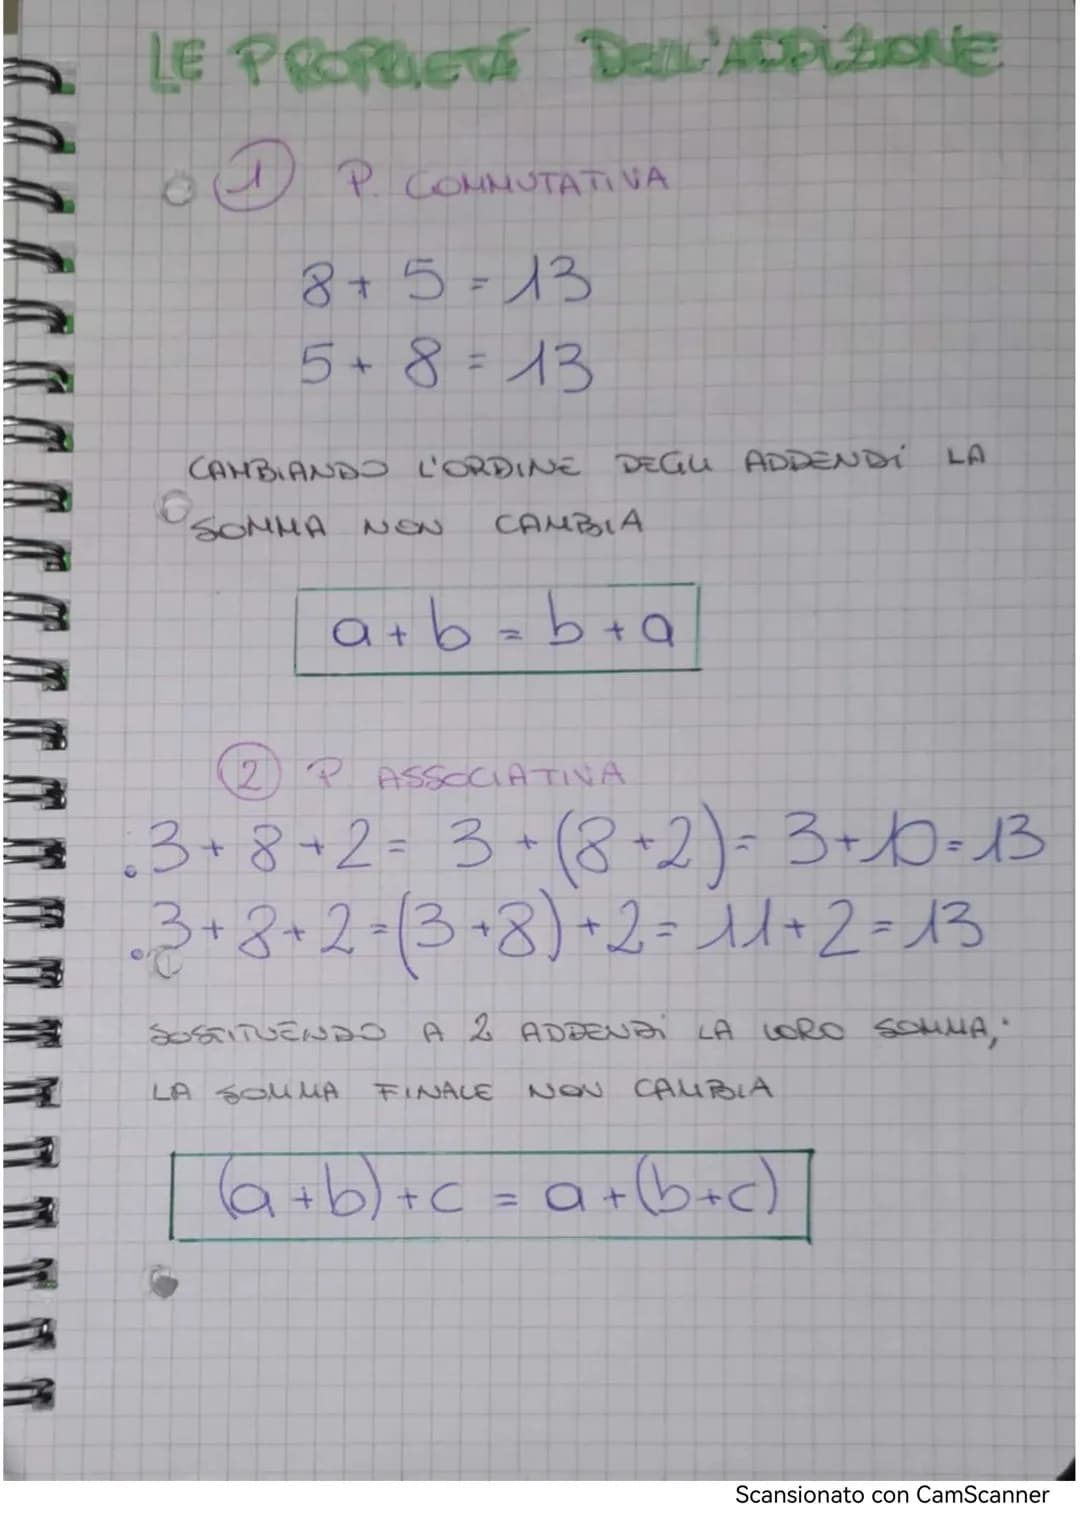 LE PROPRIETÁ DELL'ADDIZIONE
1 P. COMMUTATIVA
8 + 5 = 13
5 + 8 = 13
CAMBIANDO L'ORDINE DEGLI ADDENDI LA
SOMMA NON CAMBIA
a + b = b + a
2 P ASSOCIATIVA
. 3 + 8 + 2 = 3 + (8 + 2) = 3 + 10 = 13
. 3 + 8 + 2 = (3 + 8) + 2 = 11 + 2 = 13
SOSTITUENDO A 2 ADDENDI LA LORO SOMMA;
LA SOMMA FINALE NON CAMBIA
(a + b) + c = a + (b + c)
Scansionato con CamScanner